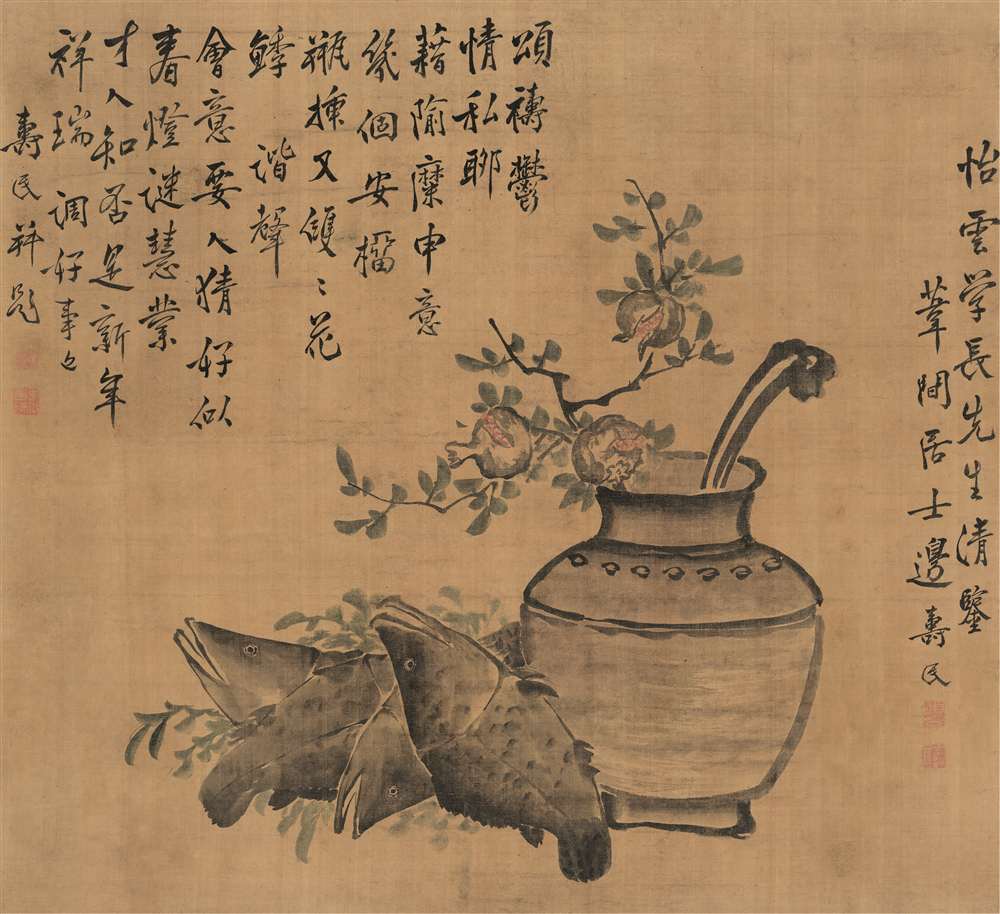 怡雲学長先生清鑒
葦間居士邊壽民
頌禱鬱
情私聊
藉隃糜申意
幾個安榴
瓶插又雙〻花
鯚諧聲
會意要人猜好似
春燈謎慧業
才人知否是新年
祥瑞 調好事近
壽民并題